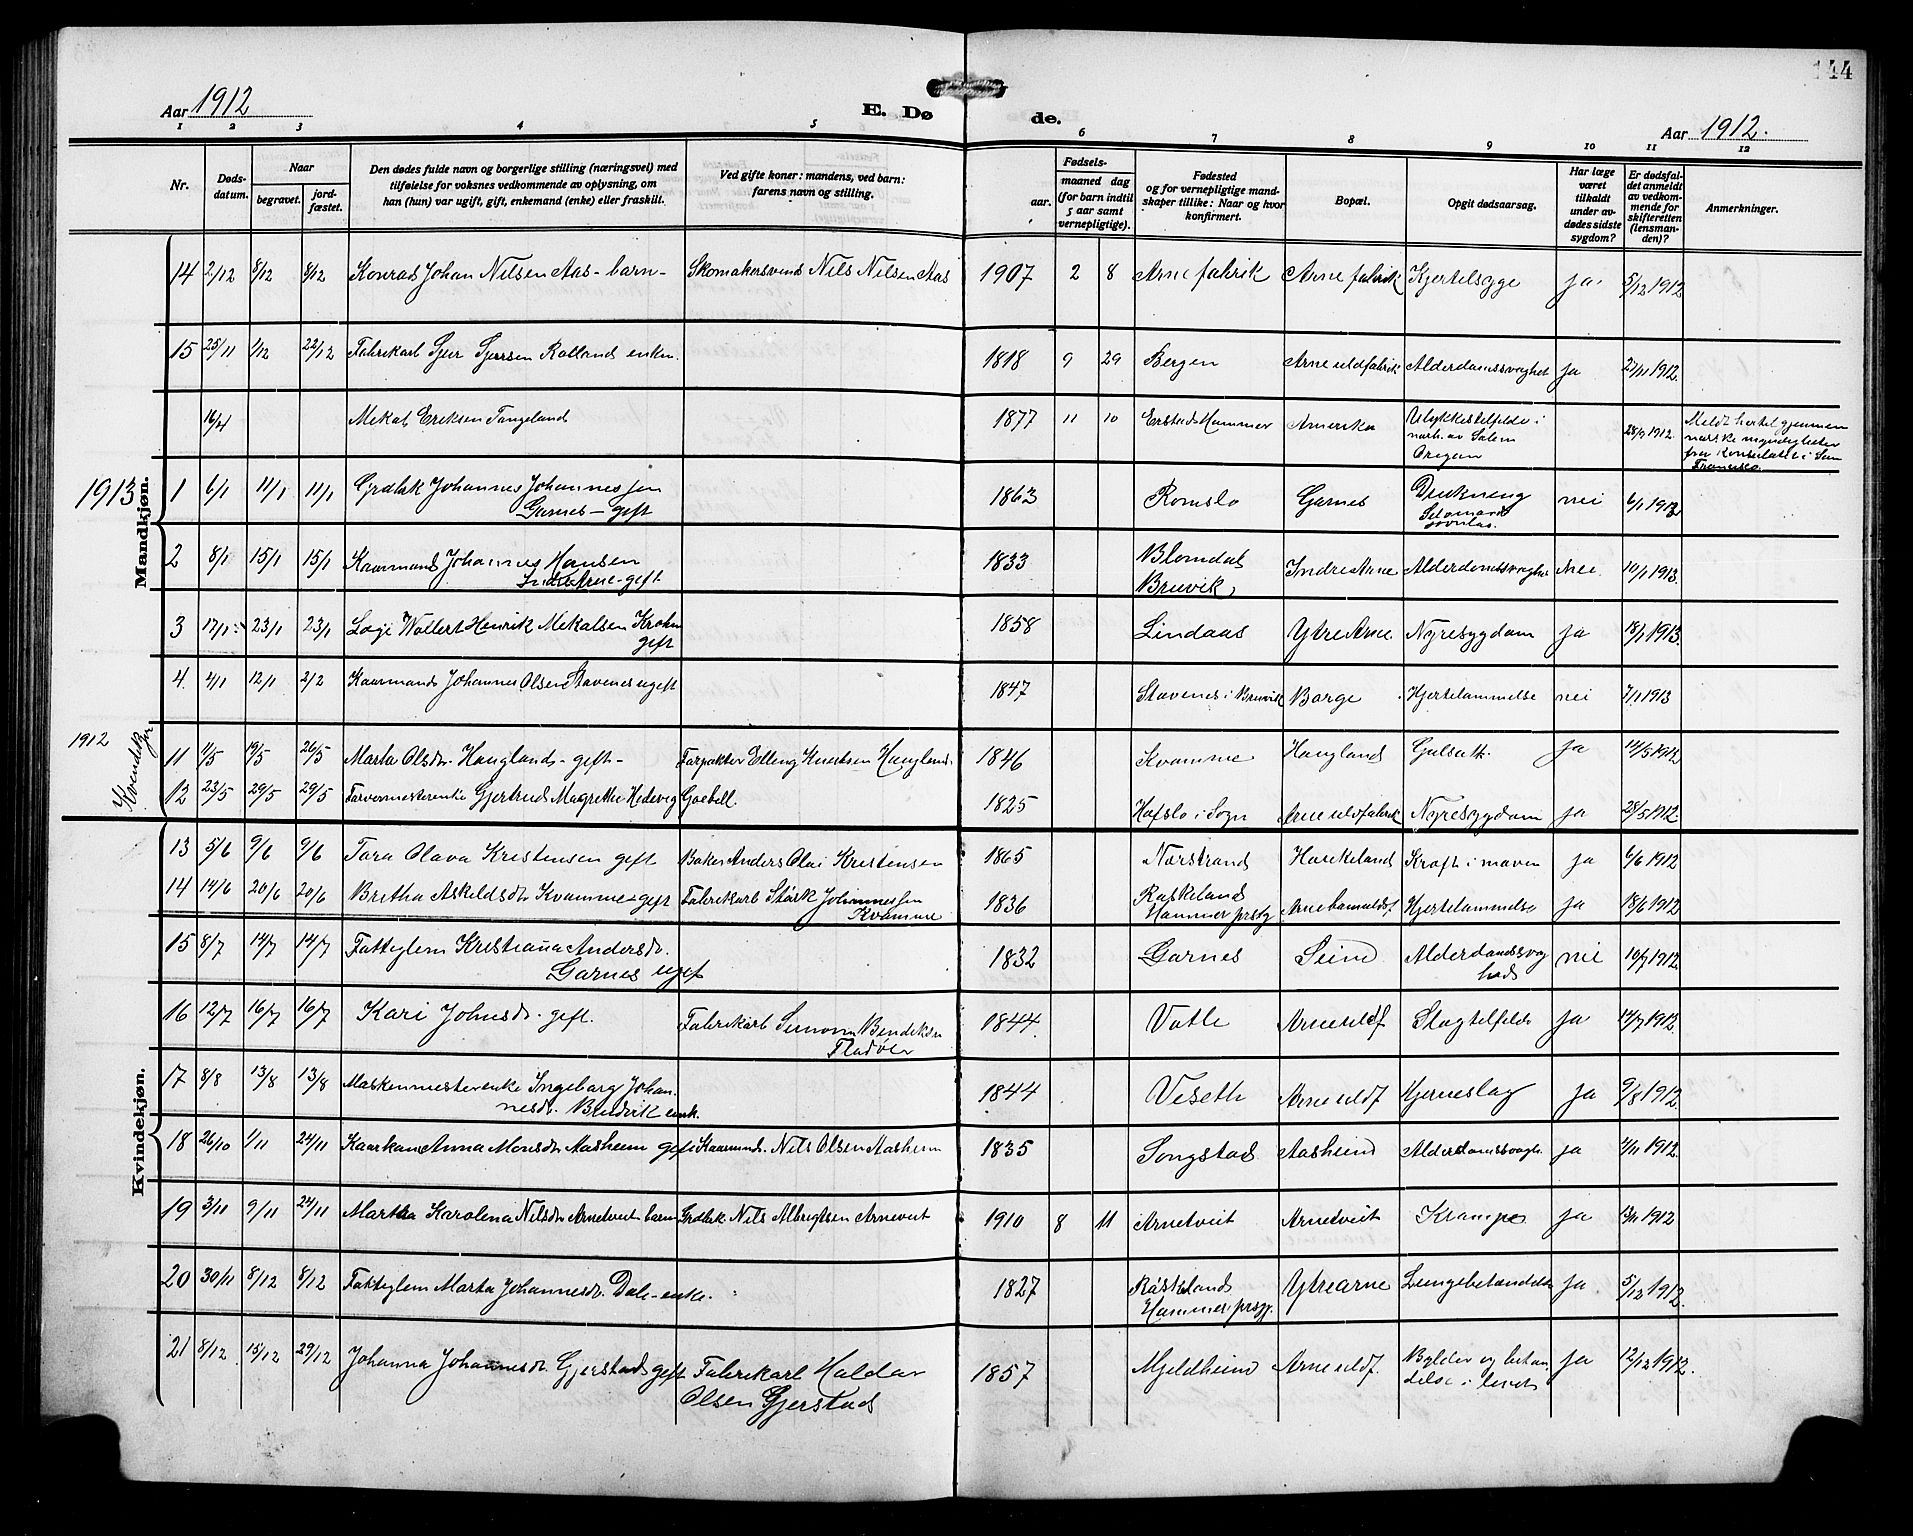 144
Aar 1912
E. Dø de.
Aar 1912.
1 2 3 4 5 6 7 8 9 10 11 12
Nr.
Døds-
datum.
Naar
begravet.
jord-
fæstet.
Den dødes fulde navn og borgerlige stilling (næringsvei) med
tilføielse for voksnes vedkommende av oplysning, om
han (hun) var ugift, gift, enkemand (enke) eller fraskilt.
Ved gifte koner: mandens, ved barn:
farens navn og stilling.
Fødsels-
aar. maaned dag
(for barn indtil
5 aar samt
vernepligtige).
Fødested
og for vernepligtige mand-
skaper tillike: Naar og hvor
konfirmert.
Bopæl.
Opgit dødsaarsag.
Har læge
været
tilkaldt
under av-
dødes sidste
sygdom?
Er dødsfal-
det anmeldt
av vedkom-
mende for
skifteretten
(lensman-
den)?
Anmerkninger.
14 2/12 8/12 8/12 Konrad Johan Nilsen Aas - barn - Skomakersvend Nils Nilsen Aas 1907 2 8 Arne fabrik Arne fabrik Kjertelsyge ja 5/12 1912
15 25/11 1/12 22/12 Fabrikarb Geir Geirsen Rolland enkm. 1818 9 29 Bergen Arne uldfabrik Alderdomssvaghet ja 27/11 1912.
16/4 Mekal Eriksen Tangeland 1877 11 10 Erstad Hammer Amerika Ulykkestilfelde i
nærh. av Salem
Oregon 28/9 1912. Meldt hertil gjennem
norske myndigheter
fra Konsulatet i San
Francisco
1913
Mandkjøn.
1 6/1 11/1 11/1 Grdbk Johannes Johannessen
Garnes - gift 1863 Romslo Garnes Drukning nei 6/1 1913
2 8/1 15/1 15/1 Kaarmand Johannes Hansen
Indre Arne - gift 1833 Blomdal
Bruvik, Indre Arne Alderdomssvaghet nei 10/1 1913.
3 17/1 23/1 23/1 Løgt Wollert Henrik Mekalsen Krohn
gift 1858 Lindaas Ytre Arne Nyresygdom ja 18/1 1913.
4. 4/1 12/1 2/2 Kaarmand Johannes Olsen Stavenes ugift 1847 Stavenes i Bruvik Borge Hjertelammelse nei 7/1 1913
1912
Kvindekjøn
11 11/5 19/5 26/5 Marta Olsdtr. Haugland - gift - Forpakter Elling Knutsen Haugland. 1846 Kvamme Haugland Gulsott ja 14/5 1912
12 23/5 29/5 29/5 Farvermesterenke Gjertrud Magrethe Hedevig Goebell. 1825 Hafslo i Sogn Arne uldfabrik Nyresygdom ja 28/5 1912.
13 5/6 9/6 9/6 Tora Olava Kristensen gift Baker Anders Olai Kristensen 1865 Nærstrand Haukeland Kræft i maven ja 6/6 1912
14 14/6 20/6 20/6 Britha Askildsdtr Kvamme - gift Fabrikarb Størk Johannessen
Kvamme 1836 Raskeland
Hammer prstg Hjertelammelse ja 18/6 1912
15 8/7 14/7 14/7 Fattiglem Kristiana Andersdr.
Garnes ugift 1832 Garnes Seim Alderdomssvag
heds nei 10/7 1912
16 12/7 16/7 16/7 Kari Johnsdr. gift. Fabrikarb Simon Bendiksen
Fladøen 1844. Vatle Arne uldf Slagtilfelde ja 14/7 1912.
Kvindekjøn.
17 8/8 13/8 13/8 Maskinmesterenke Ingeborg Johan-
nesdtr. Bendixen enk. 1844 Viseth Arne uldf Hjerneslag ja 9/8 1912.
18 26/10 1/11 24/11 Kaarkone Anna Monsdtr Aasheim gift Kaarmand. Nils Olsen Aasheim 1835 Songstad Aasheim Alderdomssvagh. ja 2/11 1912.
19 3/11 9/11 24/11 Martha Karolina Nilsdtr Arnetveit barn Grdbk Nils Albrigtsen Arnetveit 1910 8 11 Arnetveit Arnetveit Krampe ja 13/11 1912
20 30/11 8/12 8/12 Fattiglem Marta Johannesdr. Dale - enke. 1827 Raskeland
Hammer prsgj. Ytrearne Lungebetændelse ja. 5/12 1912.
21 8/12 15/12 29/12 Johanna Johannesdtr. Gjerstad gift Fabrikarb Haldor
Olsen Gjerstad 1857 Mjeldheim Arne uldf. Bylder og betæn
delse i livet ja 12/12 1912.